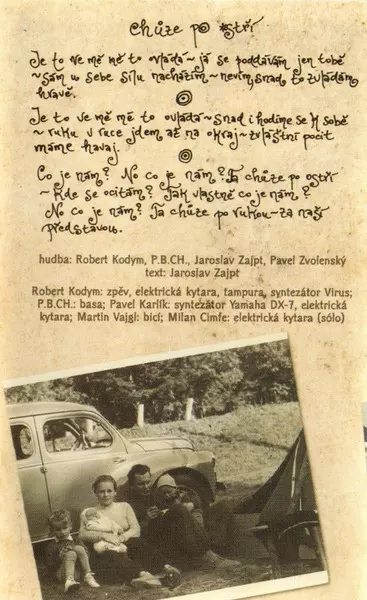 Chůze po ostří
Je to ve mě mě to ovládá ~ já se poddávám jen tobě
~ sám u sebe sílu nacházím ~ nevím, snad to zvládám
hravě.
Je to ve mě mě to ovládá ~ snad i hodíme se k sobě
~ ruku v ruce jdem až na okraj ~ zvláštní pocit
máme havaj.
Co je nám? No co je nám? Ta chůze po ostří
~ Kde se ocitám? Tak vlastně co je nám?
No co je nám? Ta chůze po rukou ~ za naší
představou.
hudba: Robert Kodym, P.B.CH., Jaroslav Zajpt, Pavel Zvolenský
text: Jaroslav Zajpt
Robert Kodym: zpěv, elektrická kytara, tampura, syntezátor Virus;
P.B.CH.: basa; Pavel Karlík: syntezátor Yamaha DX-7, elektrická
kytara; Martin Vajgl: bicí; Milan Cimfe: elektrická kytara (sólo)